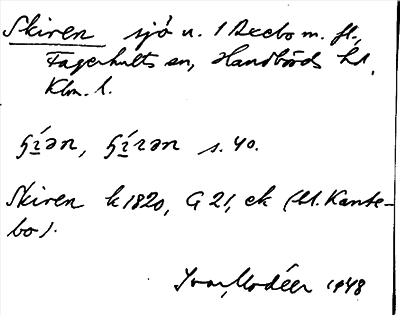 Skiren sjö u. 1 Axebo m. fl.,
Fagerhults sn, Handbörds hd,
Klm. l.
s. 40.
Skiren k 1820, G 21, ek (bl. Kante-
bo).
Ivar Modéer 1948